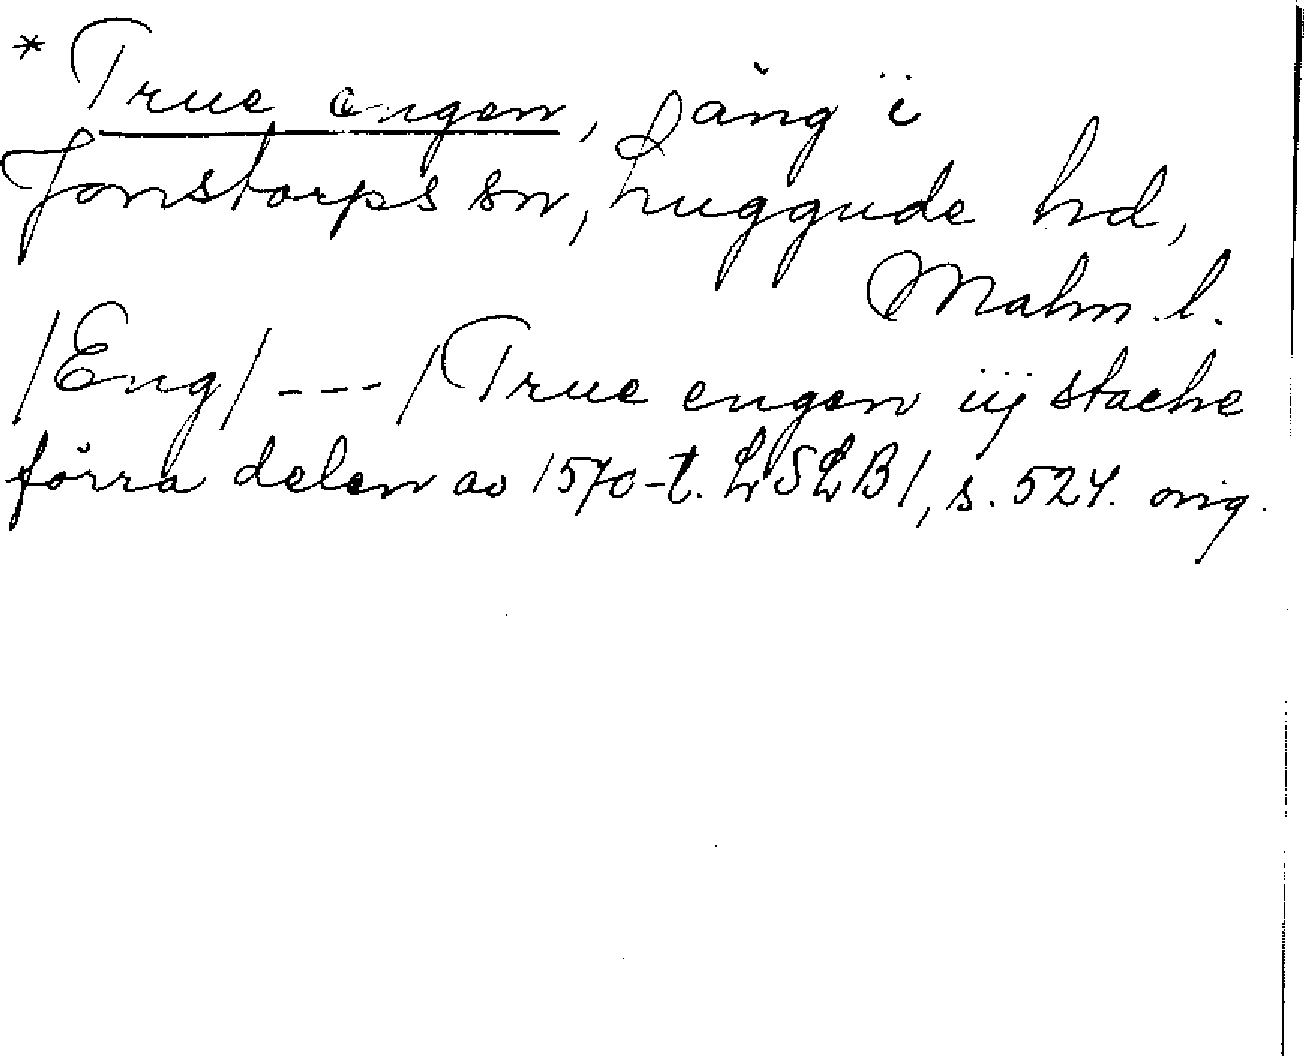 * True engen, äng i
Jonstorps sn, Luggude hd,
Malm. l.
/Eng/ --- / True engen iij stacke
förra delen av 1570-t. LSLB 1, s. 524. orig.